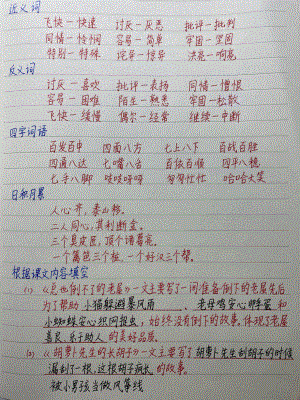 近义词
飞快—快速 讨厌—厌恶 批评—批判
同情—怜悯 容易—简单 牢固—坚固
特别—特殊 诧异—惊异 洪亮—响亮
反义词
讨厌—喜欢 批评—表扬 同情—憎恨
容易—困难 陌生—熟悉 牢固—松散
飞快—缓慢 偶尔—经常 继续—中断
四字词语
百发百中 四面八方 七上八下 百战百胜
四通八达 七嘴八舌 百依百顺 四平八稳
七手八脚 吱吱呀呀 哈哈大笑
日积月累
人心齐,泰山移。
二人同心,其利断金。
三个臭皮匠,顶个诸葛亮。
一个篱笆三个桩,一个好汉三个帮。
根据课文内容填空
(1)《总也倒不了的老屋》一文主要写了一间准备倒下的老屋先后
为了帮助小猫躲避暴风雨、老母鸡安心孵蛋和
小蜘蛛安心织网捉虫,始终没有倒下的故事,体现了老屋
善良、乐于助人的美好品质。
(2)《胡萝卜先生的长胡子》一文主要写了胡萝卜先生刮胡子的时候
漏刮了一根,这根胡子疯长的故事。
被小男孩当做风筝线